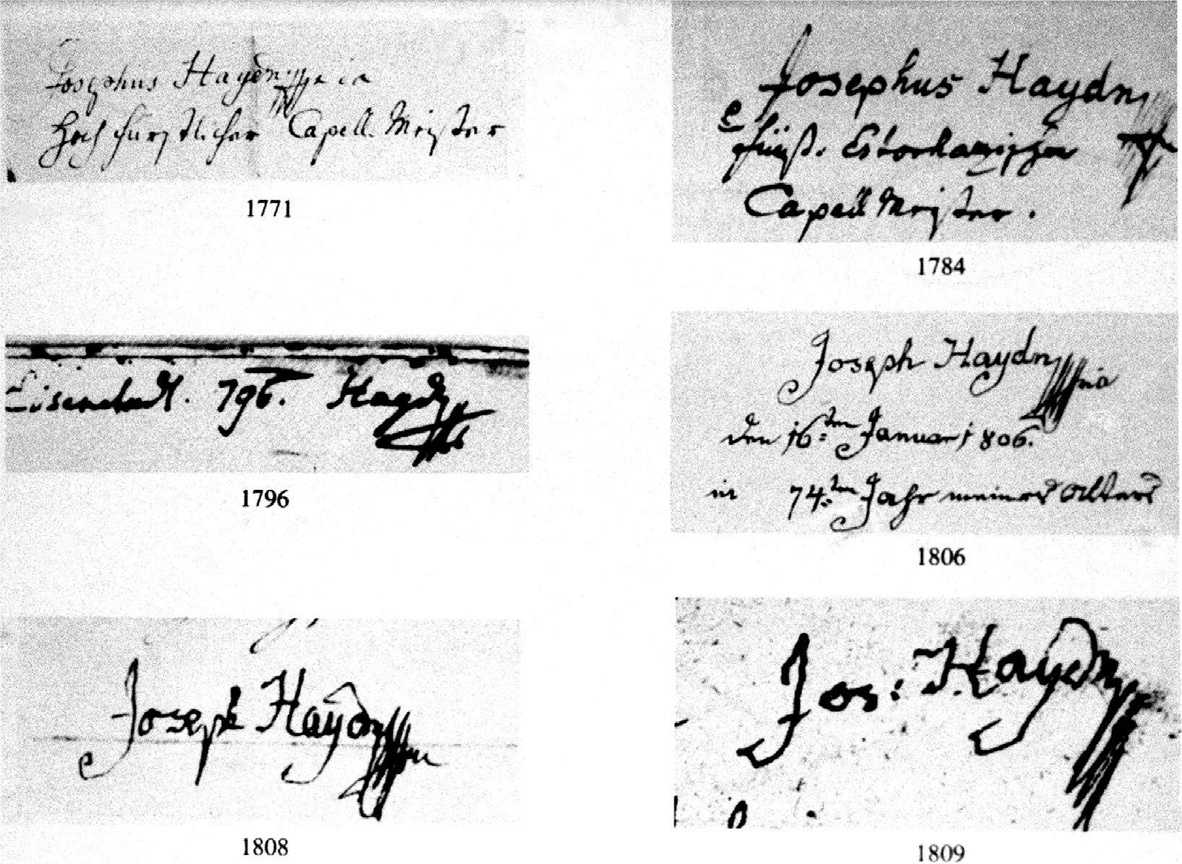 Josephus Haydn mpria
Hochfürstlicher Capell Meister
1771
Josephus Haydn
fürstl. Esterhazischer
Capell Meister.
1784
Eisenstadt. 796. Haydn
1796
Joseph Haydn mpria
den 16ten Januar 1806.
in 74ten Jahr meines Alters
1806
Joseph Haydn mpria
1808
Jos: Haydn
1809